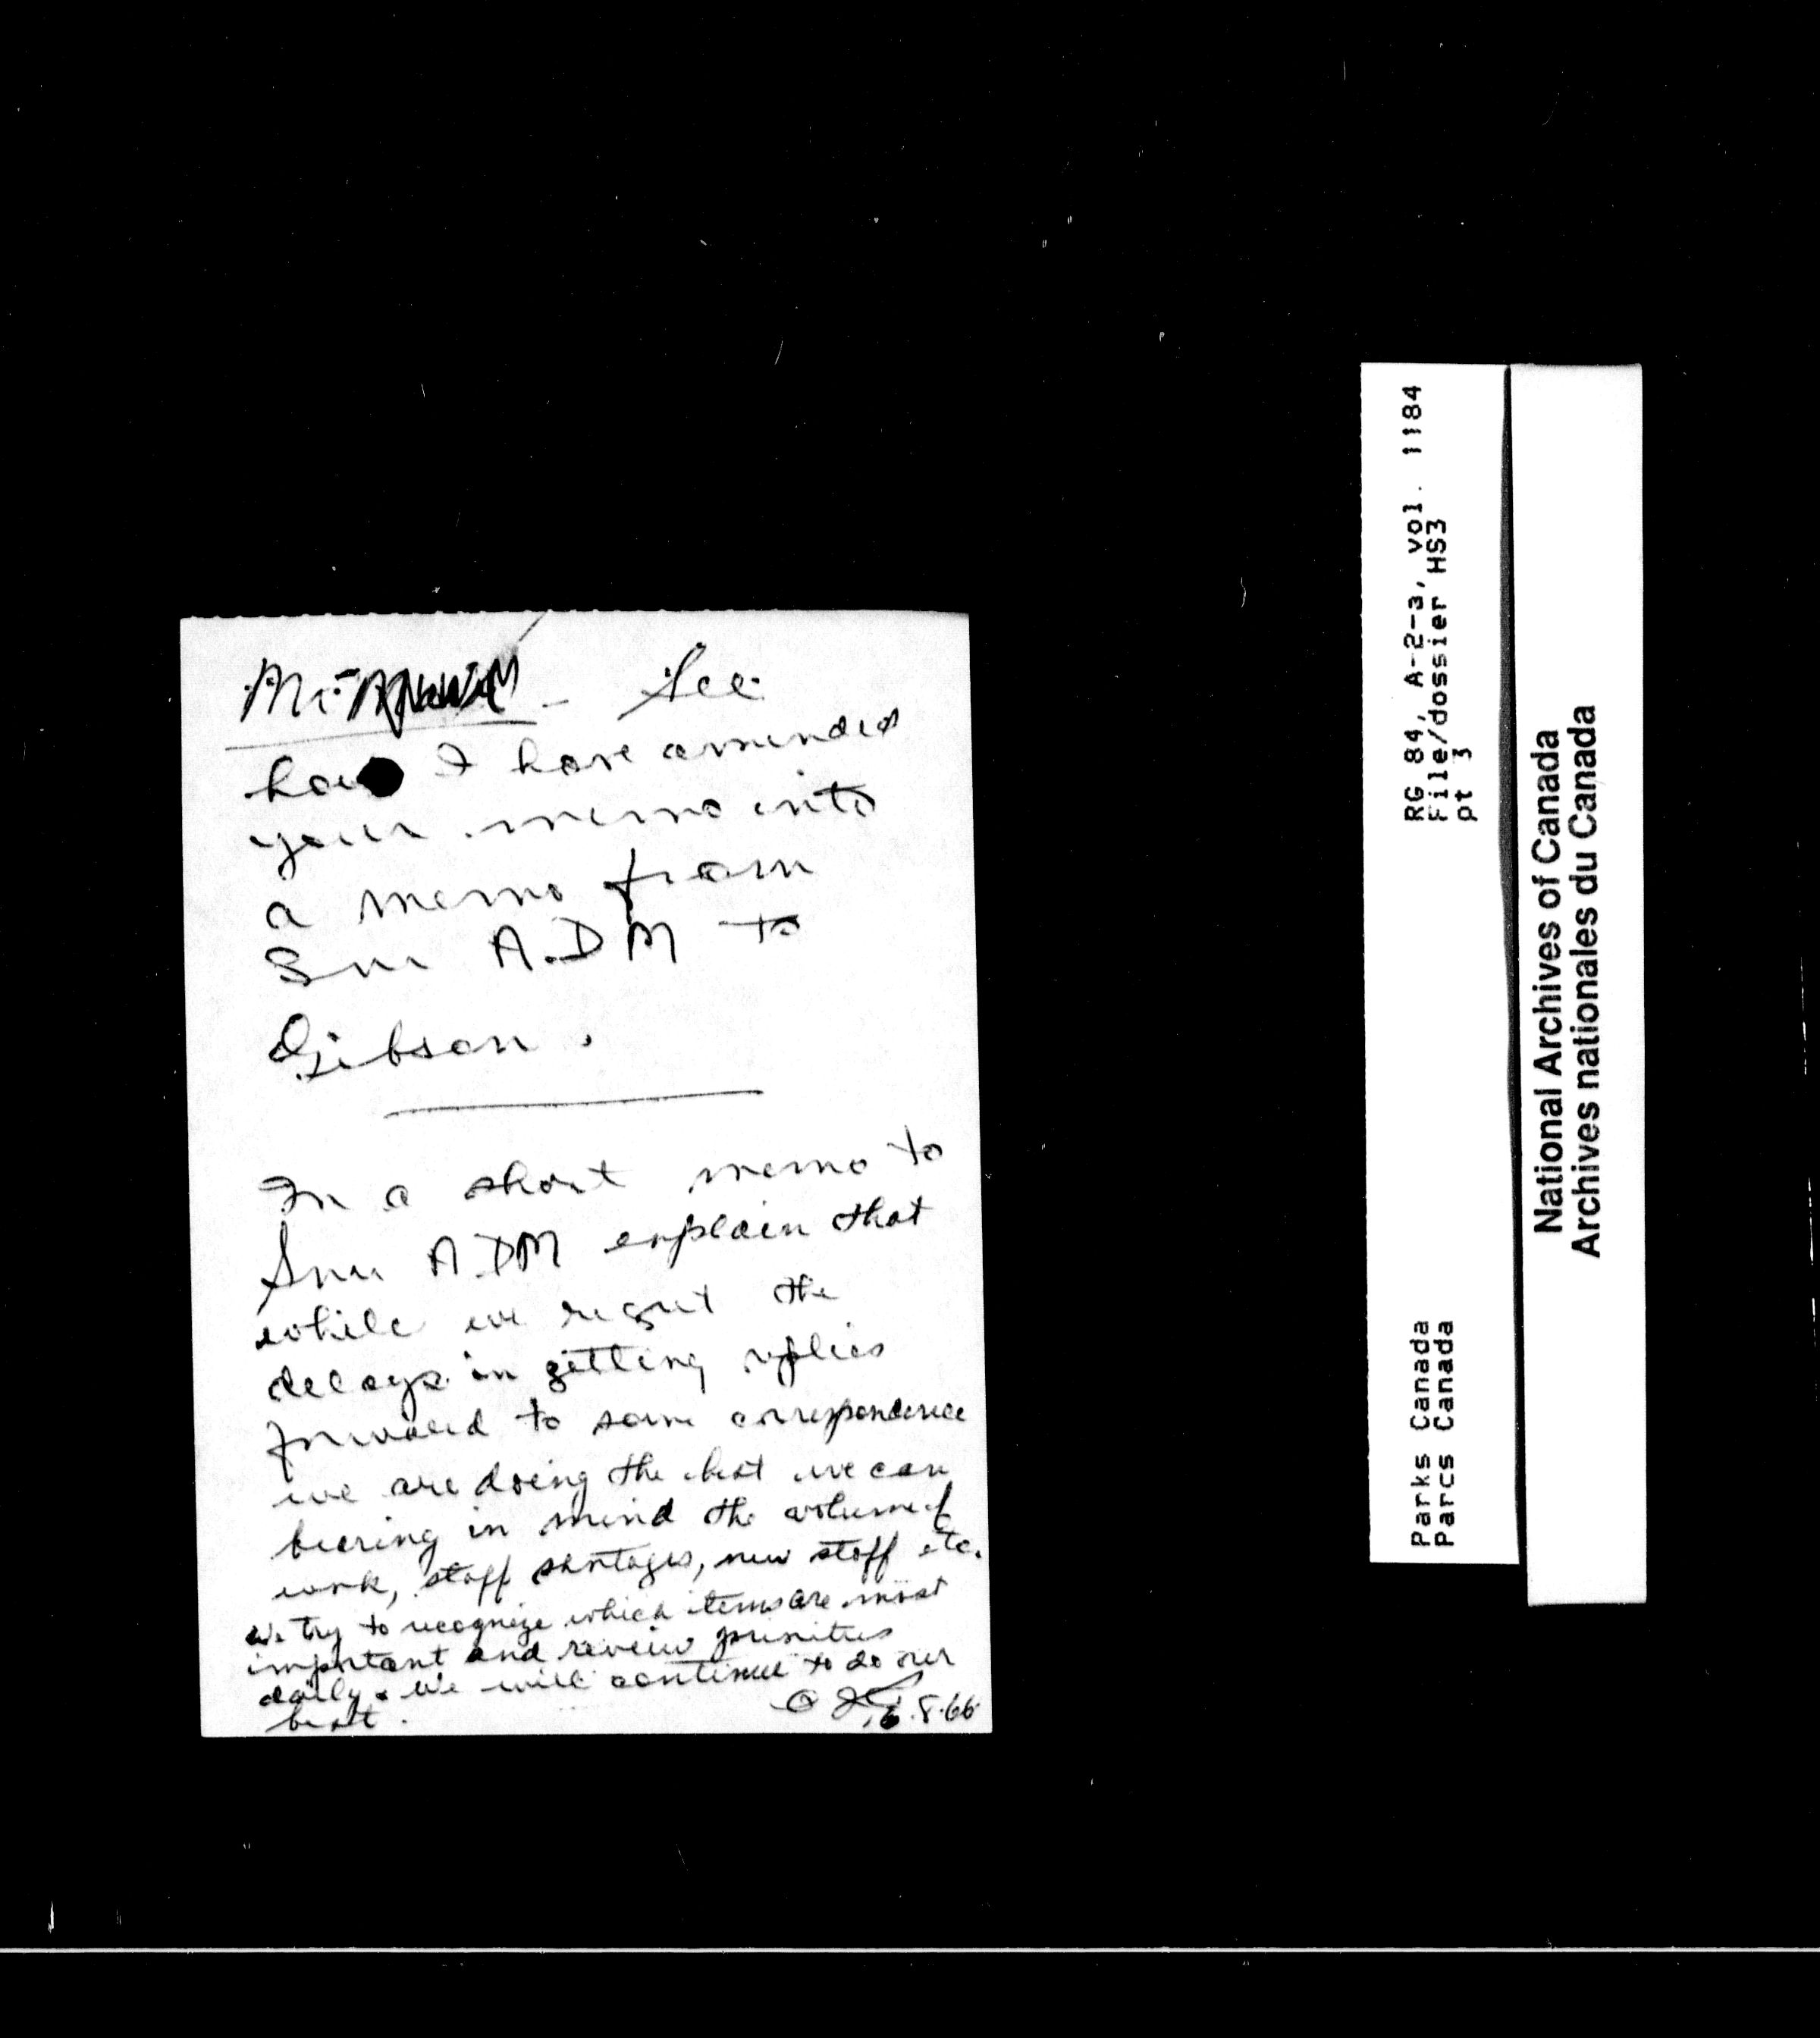 Mr. - See
how I have amended
your memo into
a memo from
Snr A.D M to
Gibson.
In a short memo to
Snr A DM explain that
while we regret the
delays in getting replies
forward to some correspondence
we are doing the best we can
bearing in mind the volume of
work, staff shortages, new staff etc.
We try to recognize which items are most
important and review priorities
daily. We will continue to do our
best.
16.8.66
RG 84, A-2-a, vol. 1184
File/dossier HS3
pt 3
Parks Canada
Parcs Canada
National Archives of Canada
Archives nationales du Canada